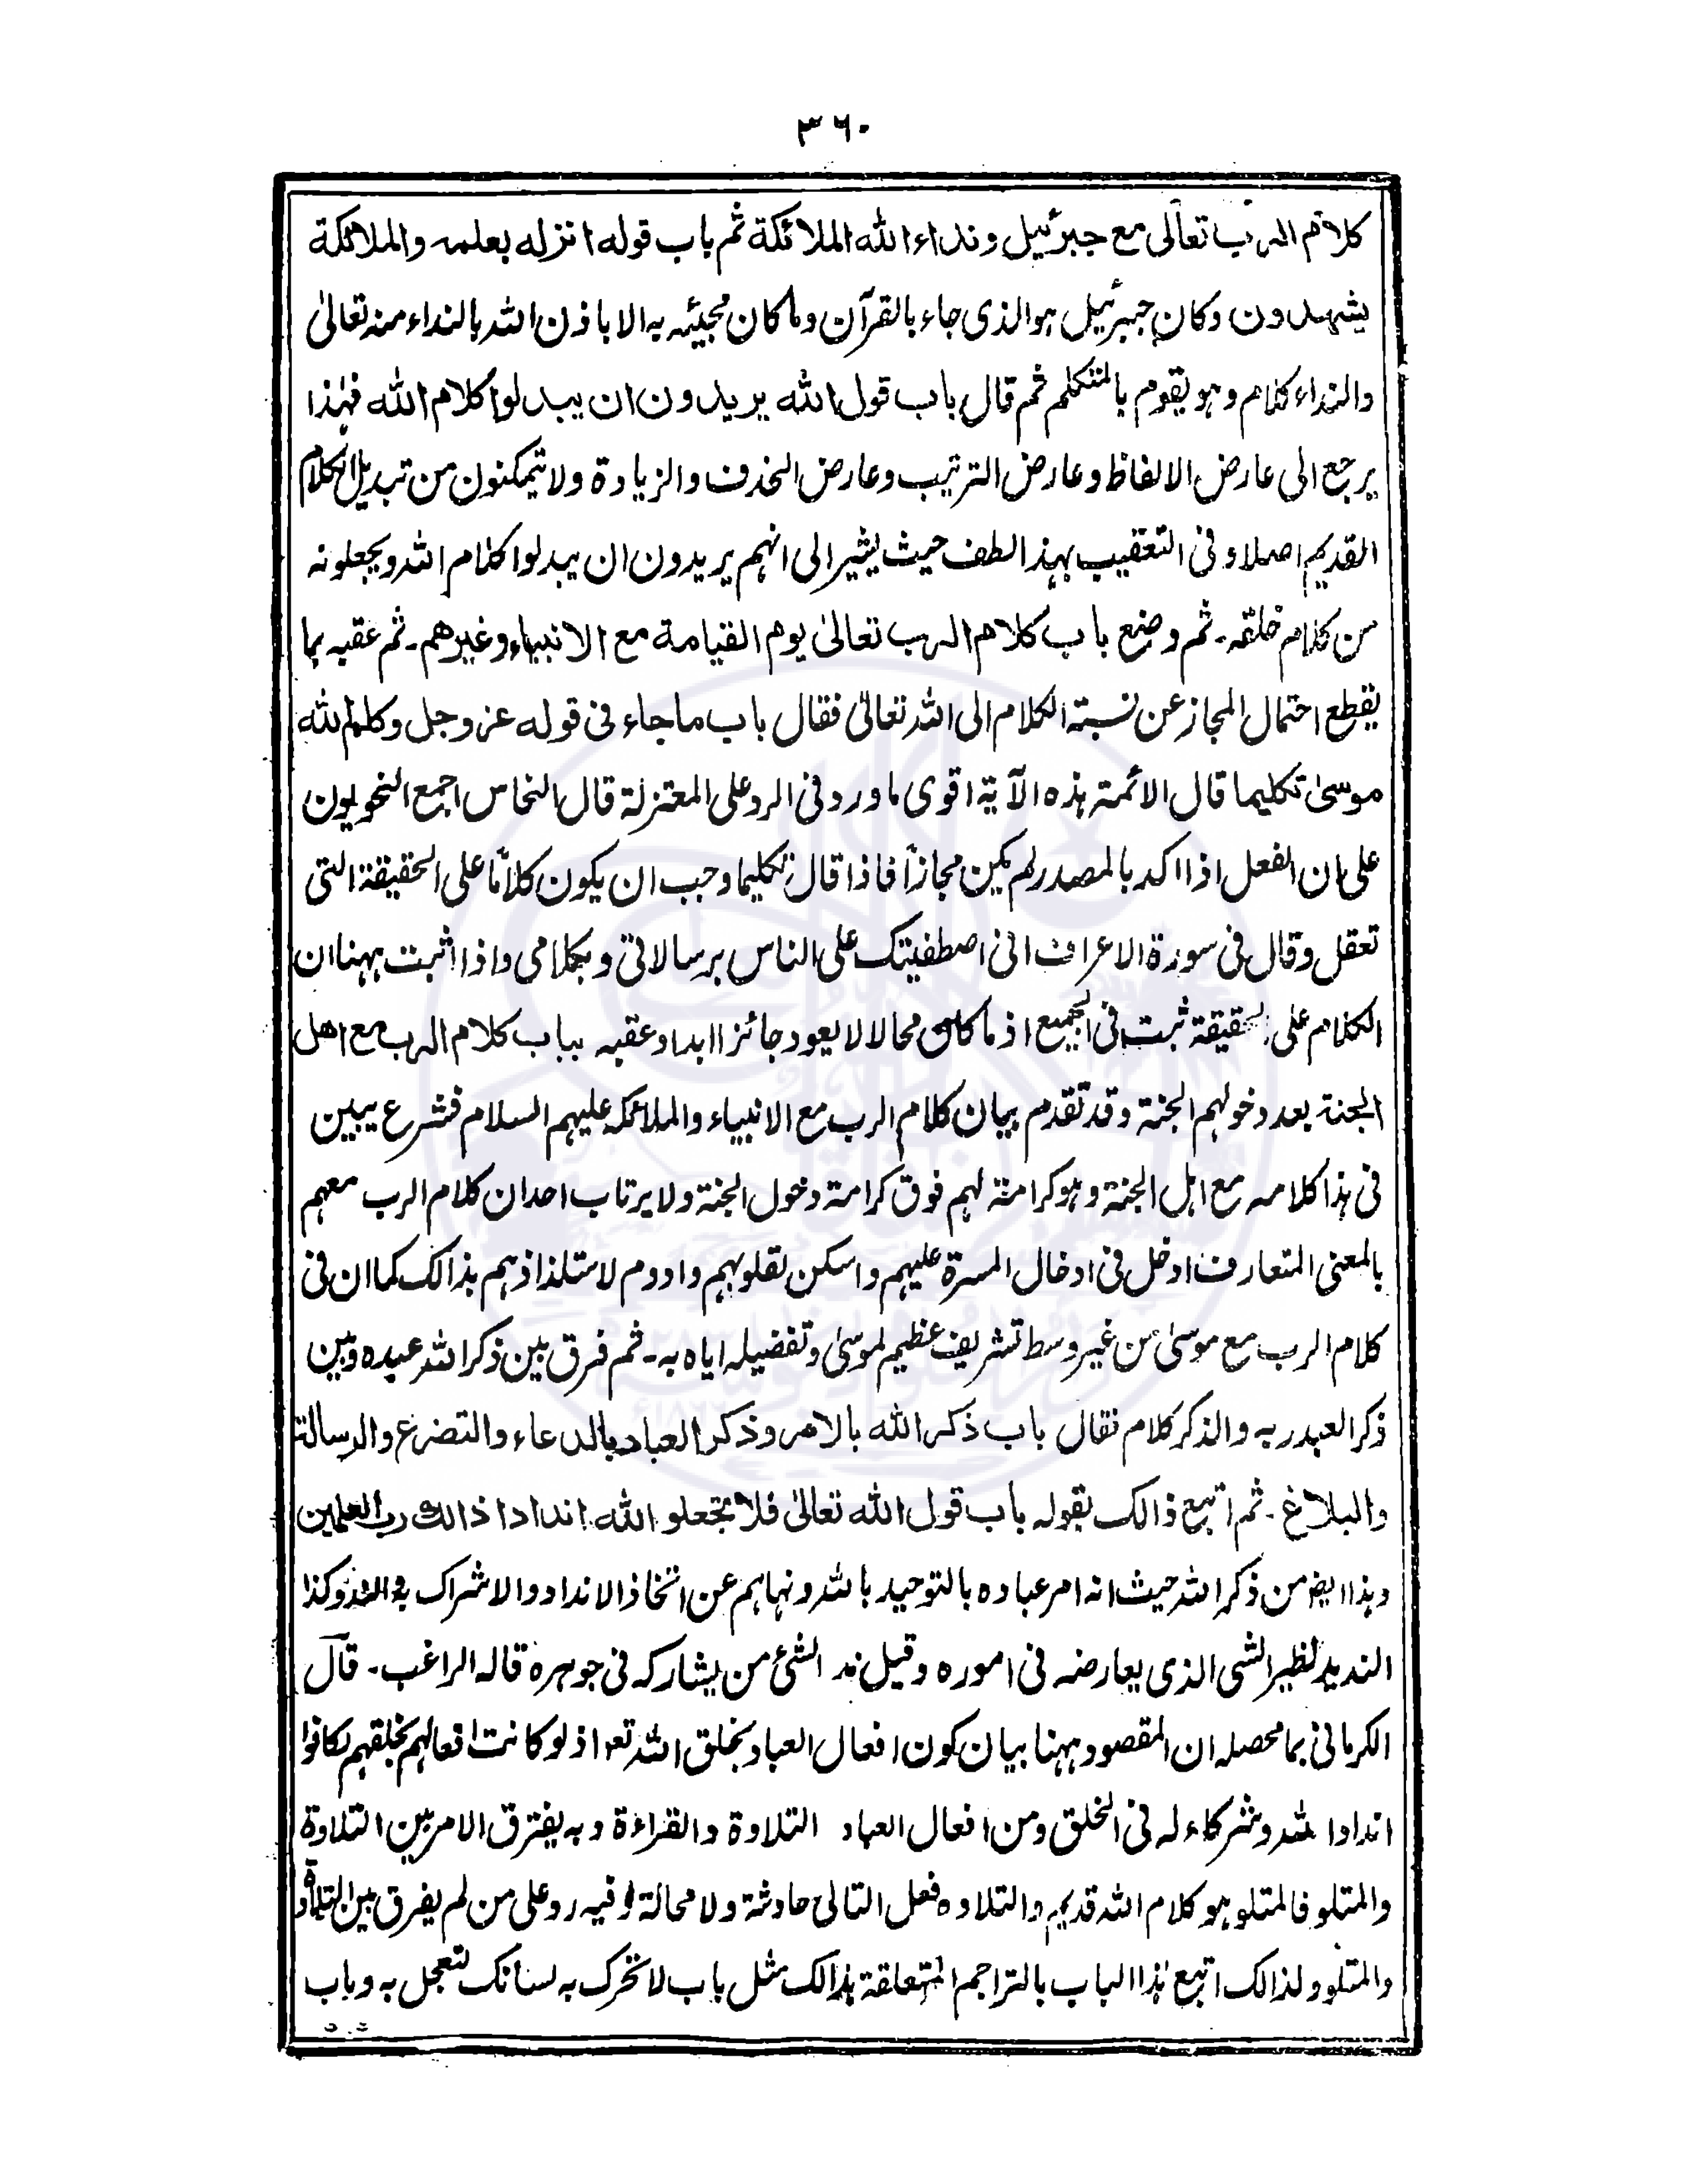 ٣٦٠
كلام الرب تعالى مع جبرئيل ونداء الله الملائكة ثم باب قوله انزله بعلمه والملائكة
يشهدون وكان جبرئيل هو الذى جاء بالقرآن وما كان مجيئه به الا باذن الله بالنداء منه تعالىٰ
والنداء كلام وهو يقوم بالمتكلم ثم قال باب قول الله يريدون ان يبدلوا كلام الله فهٰذا
يرجع الى عارض الالفاظ وعارض الترتيب وعارض الحذف والزيادة ولا يتمكنون من تبديل الكلام
القديم اصلا وفى التعقيب بهذا لطف حيث يشير الى انهم يريدون ان يبدلوا كلام الله ويجعلونه
من كلام خلقه۔ ثم وضع باب كلام الرب تعالىٰ يوم القيامة مع الانبياء وغيرهم۔ ثم عقبه بما
يقطع احتمال المجاز عن نسبة الكلام الى الله تعالىٰ فقال باب ما جاء فى قوله عز وجل وكلم الله
موسىٰ تكليما قال الائمة هذه الآية اقوى ما ورد فى الرد على المعتزلة قال النحاس اجمع النحويون
على ان الفعل اذا اكد بالمصدر لم يكن مجازاً فاذا قال تكليما وجب ان يكون كلاماً على الحقيقة التى
تعقل وقال فى سورة الاعراف انى اصطفيتك على الناس برسالاتى وبكلامى واذا اثبت ههنا ان
الكلام على الحقيقة ثبت فى الجميع اذ ما كان محالا لا يعود جائزا ابدا وعقبه بباب كلام الرب مع اهل
الجنة بعد دخولهم الجنة وقد تقدم بيان كلام الرب مع الانبياء والملائكه عليهم السلام فشرع يبين
فى هذا كلامه مع اهل الجنة وهو كرامة لهم فوق كرامة دخول الجنة ولا يرتاب احد ان كلام الرب معهم
بالمعنى المتعارف ادخل فى ادخال المسرة عليهم واسكن لقلوبهم وادوم لاستلذاذهم بذالك كما ان فى
كلام الرب مع موسىٰ من غير وسط تشريف عظيم لموسىٰ وتفضيله اياه به۔ ثم فرق بين ذكر الله عبده وبين
ذكر العبد ربه والذكر كلام فقال باب ذكر الله بالامر وذكر العباد بالدعاء والتضرع والرسالة
والبلاغ۔ ثم اتبع ذالك بقوله باب قول الله تعالىٰ فلا تجعلو الله اندادا ذالك رب العلمين
وهذا ايضا من ذكر الله حيث انه امر عباده بالتوحيد بالله ونهاهم عن اتخاذ الانداد والاشراك به والند وكذا
النديد نظير الشى الذى يعارضه فى اموره وقيل ند الشئ من يشاركه فى جوهره قاله الراغب۔ قال
الكرمانى بما محصله ان المقصود ههنا بيان كون افعال العباد بخلق الله تعا اذ لو كانت افعالهم بخلقهم لكانوا
اندادا لله وشركاء له فى الخلق ومن افعال العباد التلاوة والقراءة وبه يفترق الامر بين التلاوة
والمتلو فالمتلو هو كلام الله قديم والتلاوه فعل التالى حادثة ولا محالة وفيه رد على من لم يفرق بين التلاوة
والمتلو ولذالك اتبع هٰذا الباب بالتراجم المتعلقة بذالك مثل باب لا تحرك به لسانك لتعجل به وباب